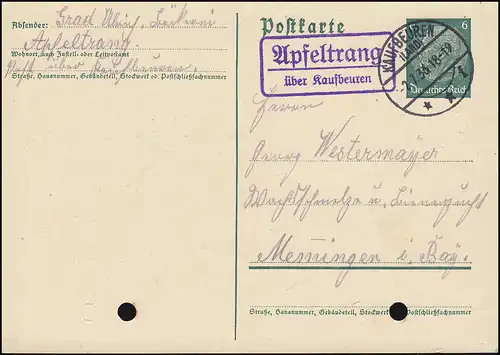 Absender: Grad Ulrich, Bäckerei
Apfeltrang
Wohnort, auch Zustell- oder Leitpostamt
Post über Kaufbeuren
Straße, Hausnummer, Gebäudeteil, Stockwerk od. Postschließfachnummer
Postkarte
Apfeltrang
über Kaufbeuren
KAUFBEUREN
(LAND)
6
Deutsches Reich
Herrn
Georg Westermayer
Wachsschmelze u. Bienenzucht
Memmingen i. Bay.
Straße, Hausnummer, Gebäudeteil, Stockwerk Postschließfachnummer